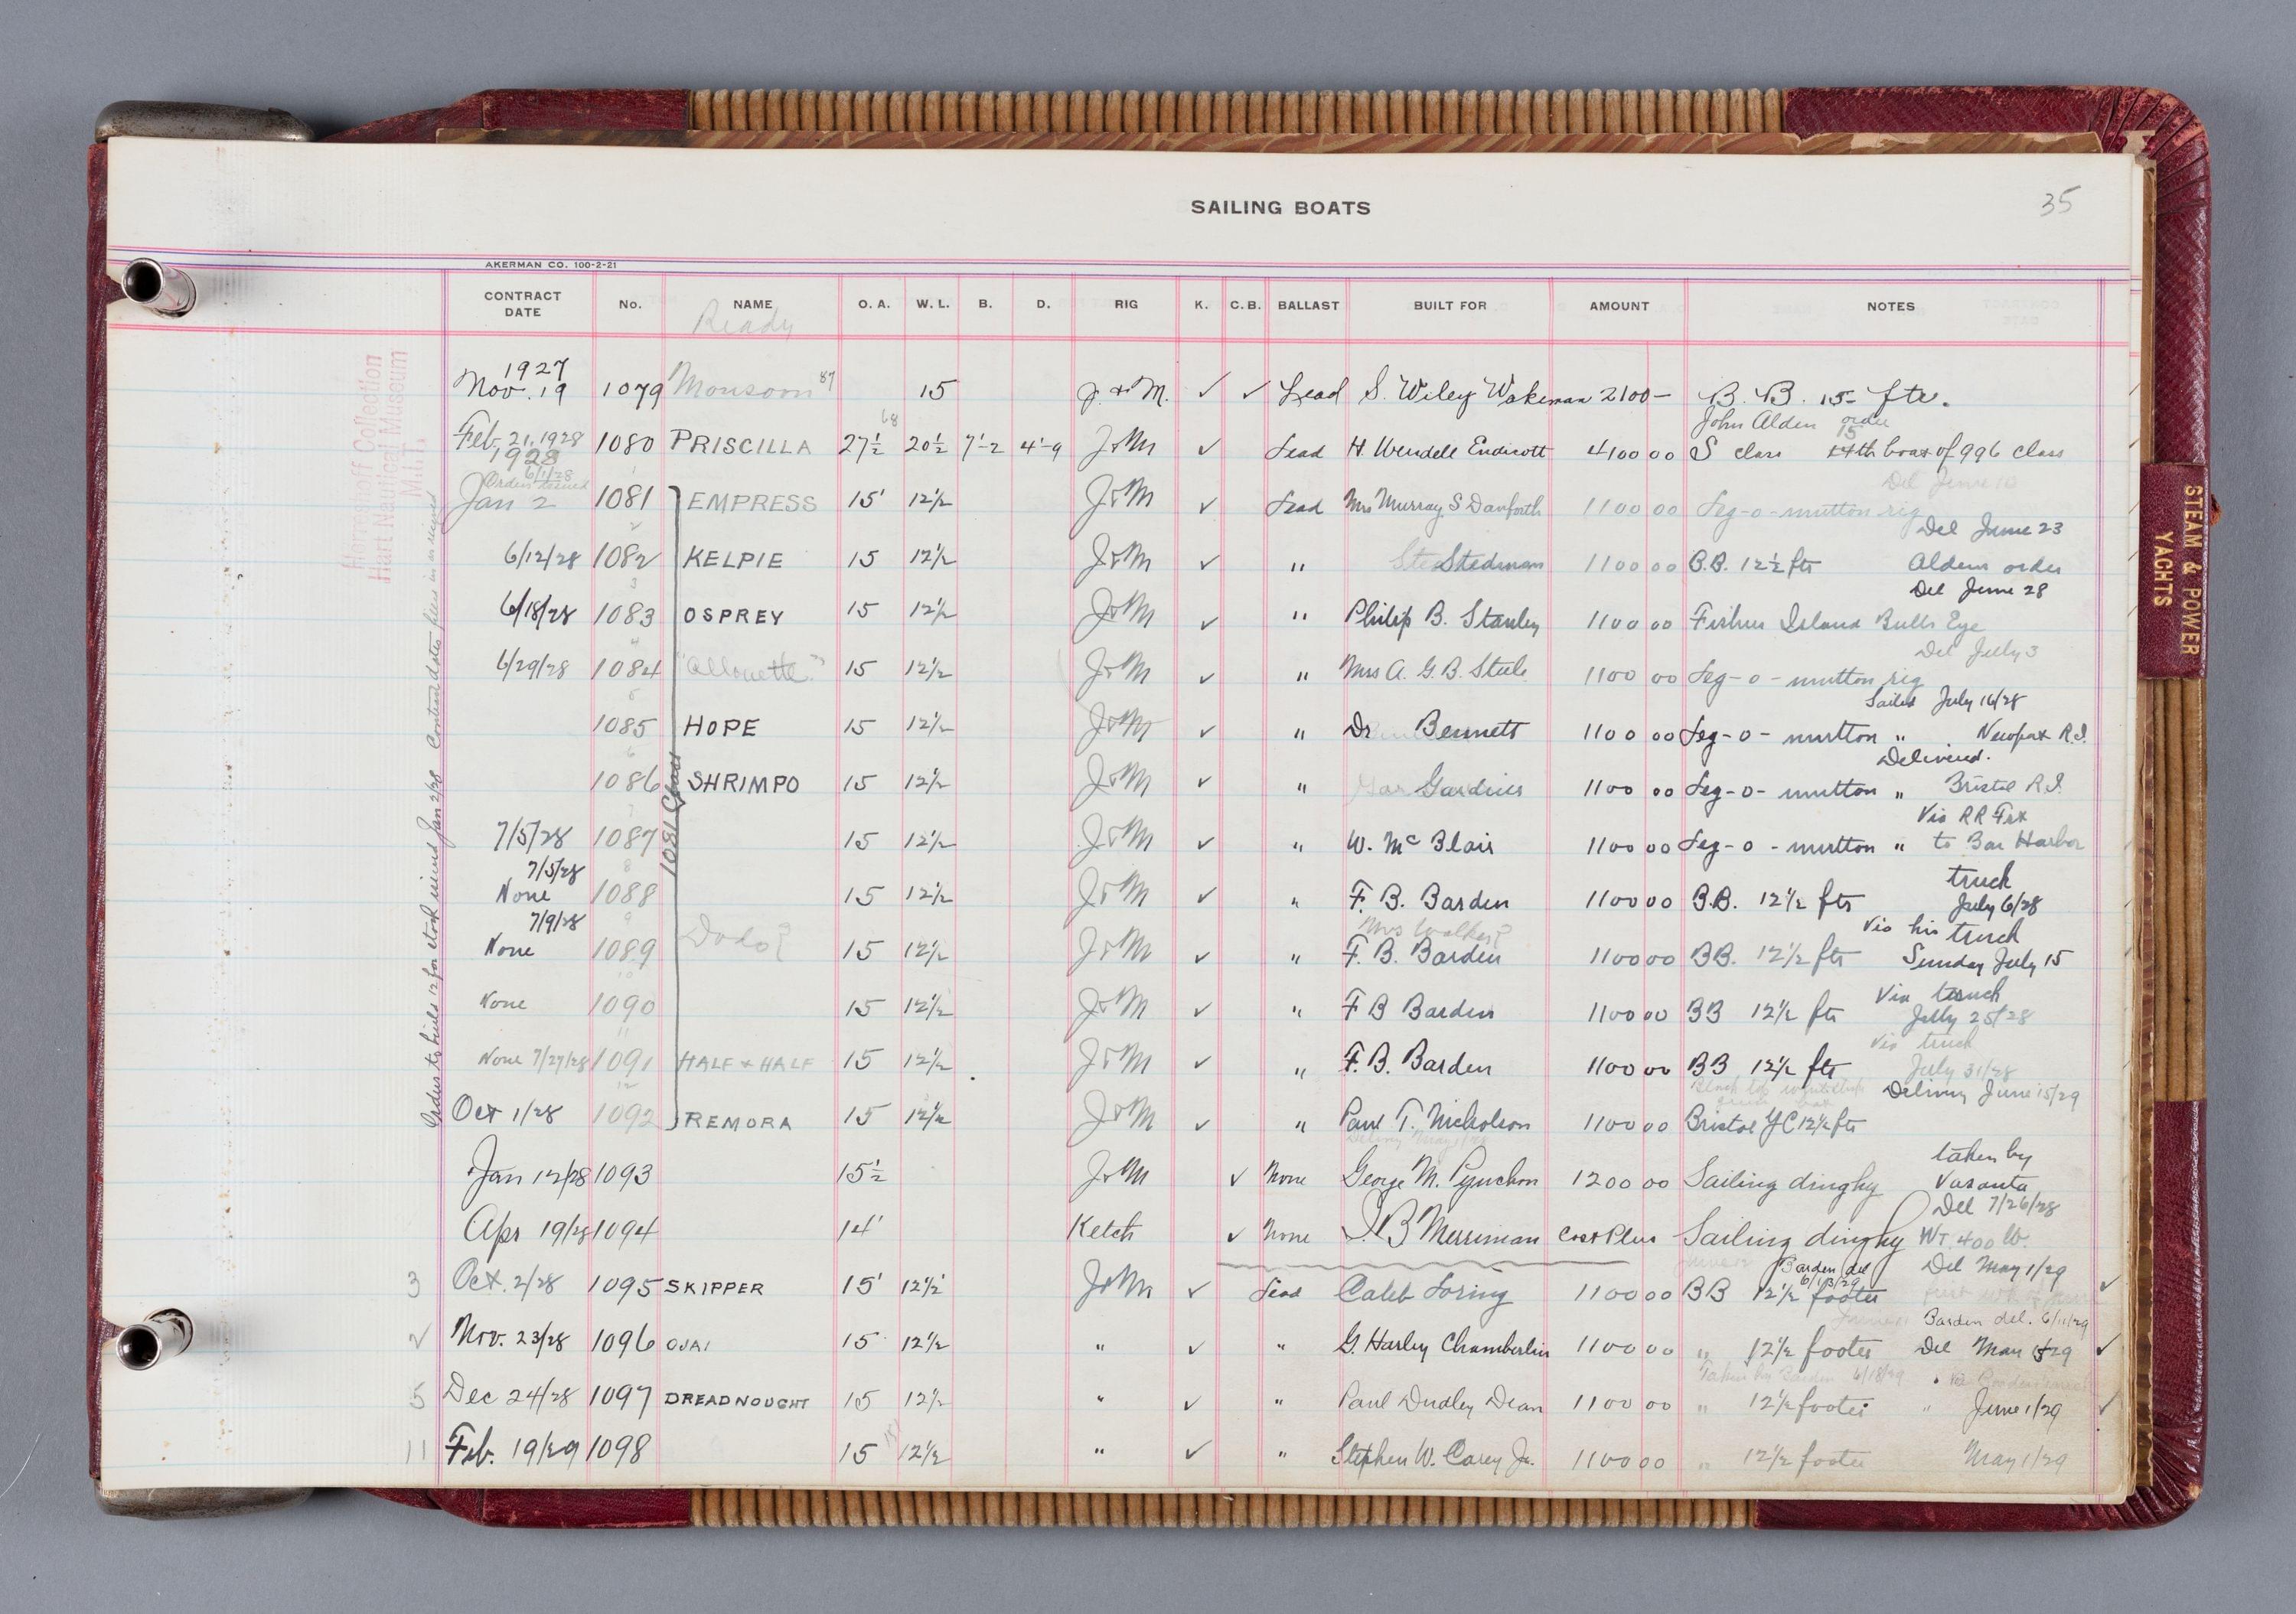 SAILING BOATS
35
AKERMAN CO. 100-2-21
CONTRACT DATE No. NAME O. A. W. L. B. D. RIG K. C. B. BALLAST BUILT FOR AMOUNT NOTES
Ready
1927
Nov. 19 1079 Monsoon 87 15 J. & M. ✓ ✓ Lead S. Wiley Wakeman 2100— B. B. 15 ftr.
68 John Alden order
15
Feb. 21, 1928 1080 PRISCILLA 27½ 20½ 7'-2 4'-9 J & M ✓ Lead H. Wendell Endicott 4100 00 S class 14th boat of 996 class
1928
6/1/28
Order issued
Del June 10
Jan 2 1081 EMPRESS 15' 12½ J & M ✓ Lead Mrs Murray S Danforth 1100 00 Leg-o-mutton rig
Del June 23
6/12/28 1082 KELPIE 15 12½ J & M ✓ " Stedman 1100 00 B.B. 12½ ftr Alden order
Del June 28
6/18/28 1083 OSPREY 15 12½ J & M ✓ " Philip B. Stanley 1100 00 Fishers Island Bulls Eye
Del July 3
6/29/28 1084 "Allouette" 15 12½ J & M ✓ " Mrs A. G. B. Steele 1100 00 Leg-o-mutton rig
Sailed July 16/28
1085 HOPE 15 12½ J & M ✓ " Dr Bennett 1100 00 Leg-o-mutton " Newport R.I.
Delivered.
1086 SHRIMPO 15 12½ J & M ✓ " Gardner 1100 00 Leg-o-mutton " Bristol R.I.
Via RR Frt
7/5/28 1087 15 12½ J & M ✓ " W. Mc Blair 1100 00 Leg-o-mutton " to Bar Harbor
7/5/28 truck
None 1088 15 12½ J & M ✓ " F. B. Barden 1100 00 B.B. 12½ ftr July 6/28
7/9/28 Mrs Walker? Via his truck
None 1089 Dodo? 15 12½ J & M ✓ " F. B. Barden 1100 00 BB. 12½ ftr Sunday July 15
Via truck
None 1090 15 12½ J & M ✓ " F B Barden 1100 00 BB 12½ ftr July 25/28
Via truck
None 7/27/28 1091 HALF & HALF 15 12½ J & M ✓ " F. B. Barden 1100 00 BB 12½ ftr July 31/28
Delivery June 15/29
Oct 1/28 1092 REMORA 15 12½ J & M ✓ " Paul T. Nicholson 1100 00 Bristol YC 12½ ftr
Delivery May 1/29
taken by
Jan 12/28 1093 15½ J & M ✓ None George M. Pynchon 1200 00 Sailing dinghy Vasanta
Del 7/26/28
Apr 19/28 1094 14' Ketch ✓ None I. B Merriman Cost Plus Sailing dinghy WT. 400 lb.
Barden del 6/13/29 Del May 1/29
3 Oct. 2/28 1095 SKIPPER 15' 12½' J & M ✓ Lead Caleb Loring 1100 00 BB 12½ footer ✓
Barden del. 6/11/29
2 Nov. 23/28 1096 OJAI 15 12½ " ✓ " G. Harley Chamberlin 1100 00 " 12½ footer Del May 15 29 ✓
Taken by Barden 6/18/29
5 Dec 24/28 1097 DREADNOUGHT 15 12½ " ✓ " Paul Dudley Dean 1100 00 " 12½ footer " June 1/29 ✓
11 Feb. 19/29 1098 15 12½ " ✓ " Stephen W. Carey Jr. 1100 00 " 12½ footer May 1/29
1081 Class
Order to build 12 for stock issued Jan 2/28 Contract dates here as received
Herreshoff Collection
Hart Nautical Museum
M.I.T.
STEAM & POWER
YACHTS